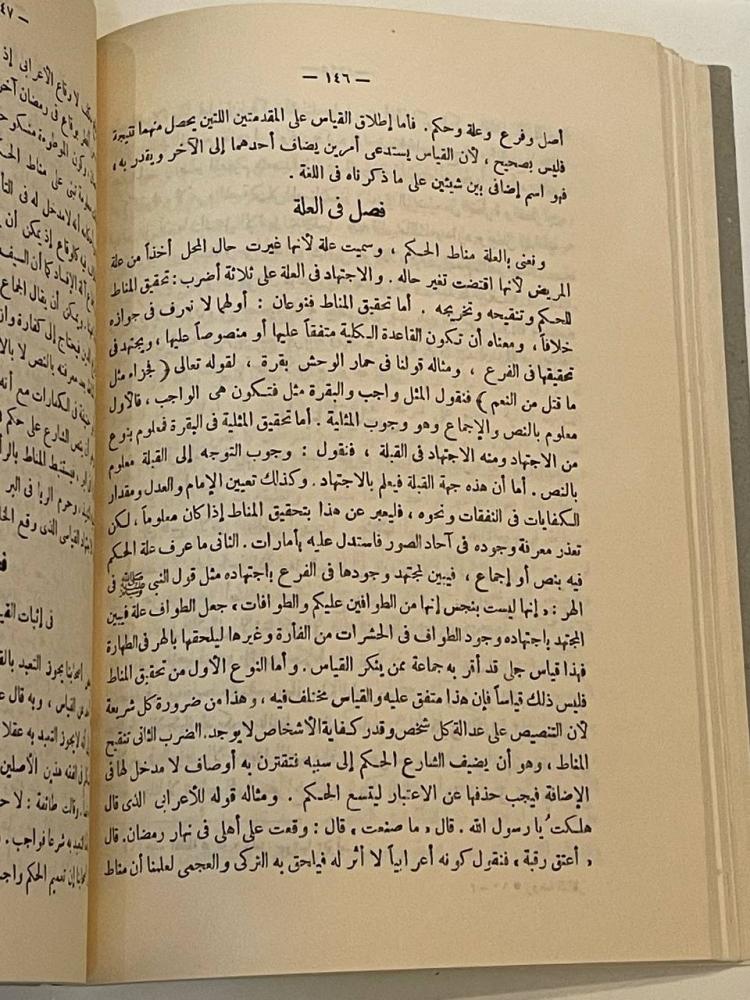 — ١٤٦ —
أصل وفرع وعلة وحكم . فأما إطلاق القياس على المقدمتين اللتين يحصل منهما نتيجة
فليس بصحيح ، لأن القياس يستدعى أمرين يضاف أحدهما إلى الآخر ويقدر به ،
فهو اسم إضافى بين شيئين على ما ذكرناه فى اللغة .
فصل فى العلة
ونعنى بالعلة مناط الحكم ، وسميت علة لأنها غيرت حال المحل أخذاً من علة
المريض لأنها اقتضت تغير حاله . والاجتهاد فى العلة على ثلاثة أضرب : تحقيق المناط
للحكم وتنقيحه وتخريجه . أما تحقيق المناط فنوعان : أولهما لا نعرف فى جوازه
خلافاً ، ومعناه أن تكون القاعدة الكلية متفقاً عليها أو منصوصاً عليها ، ويجتهد فى
تحقيقها فى الفرع ، ومثاله قولنا فى حمار الوحش بقرة ، لقوله تعالى ﴿ فجزاء مثل
ما قتل من النعم ﴾ فنقول المثل واجب والبقرة مثل فتكون هى الواجب ، فالأول
معلوم بالنص والإجماع وهو وجوب المثلية . أما تحقيق المثلية فى البقرة فمعلوم بنوع
من الاجتهاد ومنه الاجتهاد فى القبلة ، فنقول : وجوب التوجه إلى القبلة معلوم
بالنص . أما أن هذه جهة القبلة فيعلم بالاجتهاد . وكذلك تعيين الإمام والعدل ومقدار
الكفايات فى النفقات ونحوه ، فليعبر عن هذا بتحقيق المناط إذا كان معلوماً ، لكن
تعذر معرفة وجوده فى آحاد الصور فاستدل عليه بأمارات . الثانى ما عرف علة الحكم
فيه بنص أو إجماع ، فيبين المجتهد وجودها فى الفرع باجتهاده مثل قول النبى ﷺ فى
الهر : « إنها ليست بنجس إنها من الطوافين عليكم والطوافات » جعل الطواف علة فيبين
المجتهد باجتهاده وجود الطواف فى الحشرات من الفأرة وغيرها ليلحقها بالهر فى الطهارة
فهذا قياس جلى قد أقر به جماعة ممن ينكر القياس . وأما النوع الأول من تحقيق المناط
فليس ذلك قياساً فإن هذا متفق عليه والقياس مختلف فيه ، وهذا من ضرورة كل شريعة
لأن التنصيص على عدالة كل شخص وقدر كفاية الأشخاص لا يوجد . الضرب الثانى تنقيح
المناط ، وهو أن يضيف الشارع الحكم إلى سببه فتقترن به أوصاف لا مدخل لها فى
الإضافة فيجب حذفها عن الاعتبار ليتسع الحكم . ومثاله قوله للأعرابى الذى قال
هلكت يا رسول الله . قال « ما صنعت » قال : وقعت على أهلى فى نهار رمضان. قال
« أعتق رقبة » فنقول كونه أعرابياً لا أثر له فيلحق به التركى والعجمى لعلمنا أن مناط